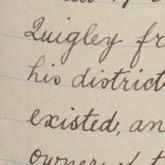 Quigley fr
his district
existed, an
owner of